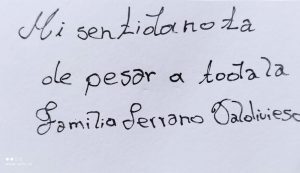 Mi sentida nota
de pesar a toda la
Familia Serrano Valdivieso